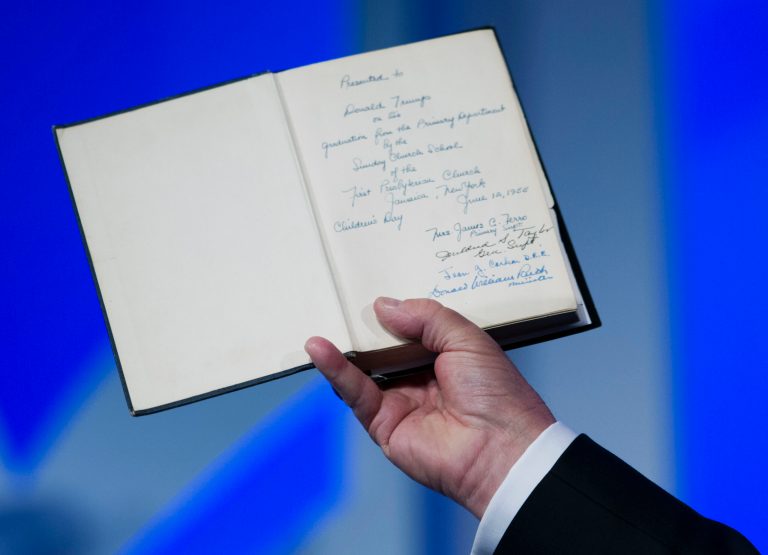 Presented to
Donald Trump
on his
graduation from the Primary Department
by the
Sunday Church School
of the
First Presbyterian Church
Jamaica, New York
Children's Day June 12, 1955
Mrs. James C. Ferro
Primary Supt.
S. Taylor
Gen. Supt.
Jean J. D.R.E.
Donald William
Minister